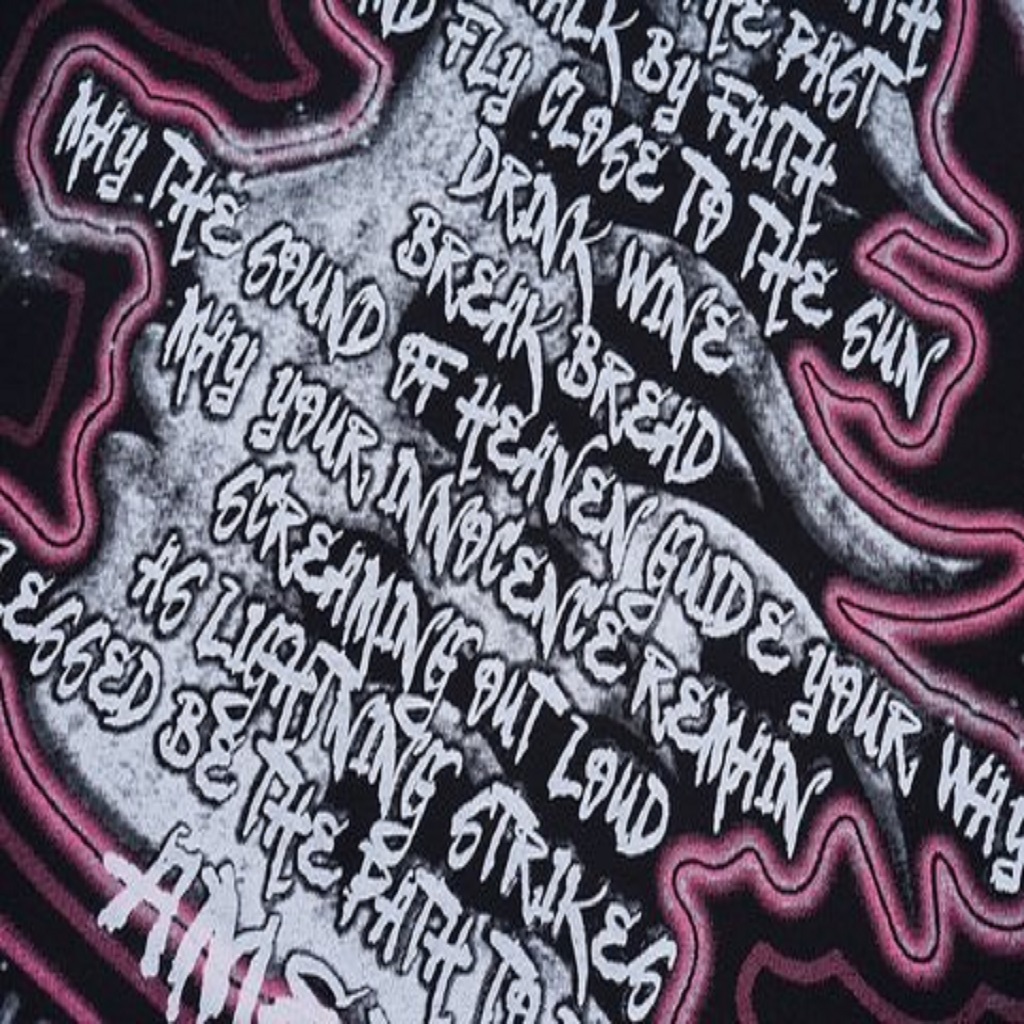 THE PAST
ALK BY FAITH
ND FLY CLOSE TO THE SUN
DRINK WINE
BREAK BREAD
MAY THE SOUND OF HEAVEN GUIDE YOUR WAY
MAY YOUR INNOCENCE REMAIN
SCREAMING OUT LOUD
AS LIGHTNING STRIKES
LESSED BE THE PATH TO
AM